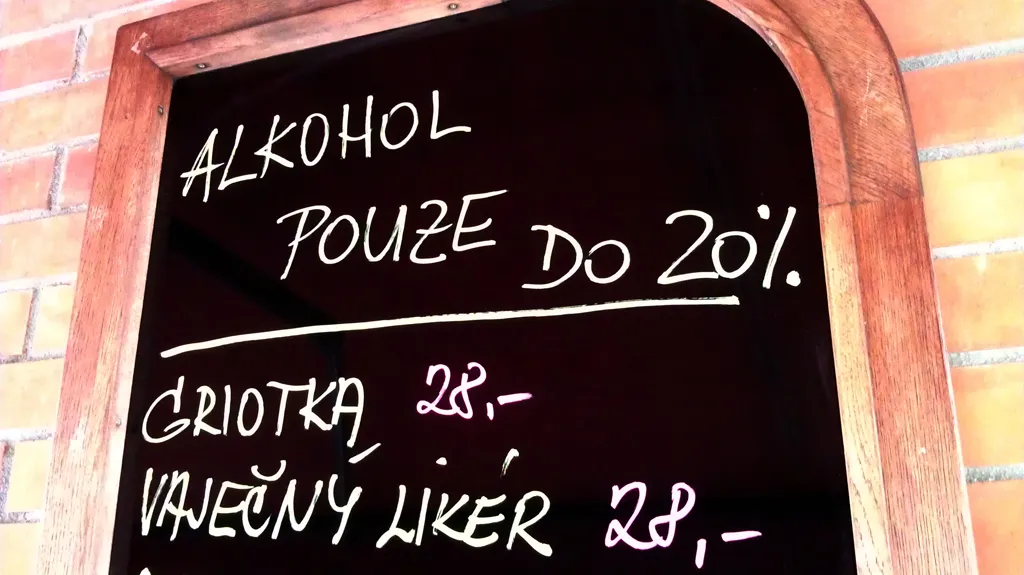 ALKOHOL
POUZE DO 20%
GRIOTKA 28,-
VAJEČNÝ LIKÉR 28,-